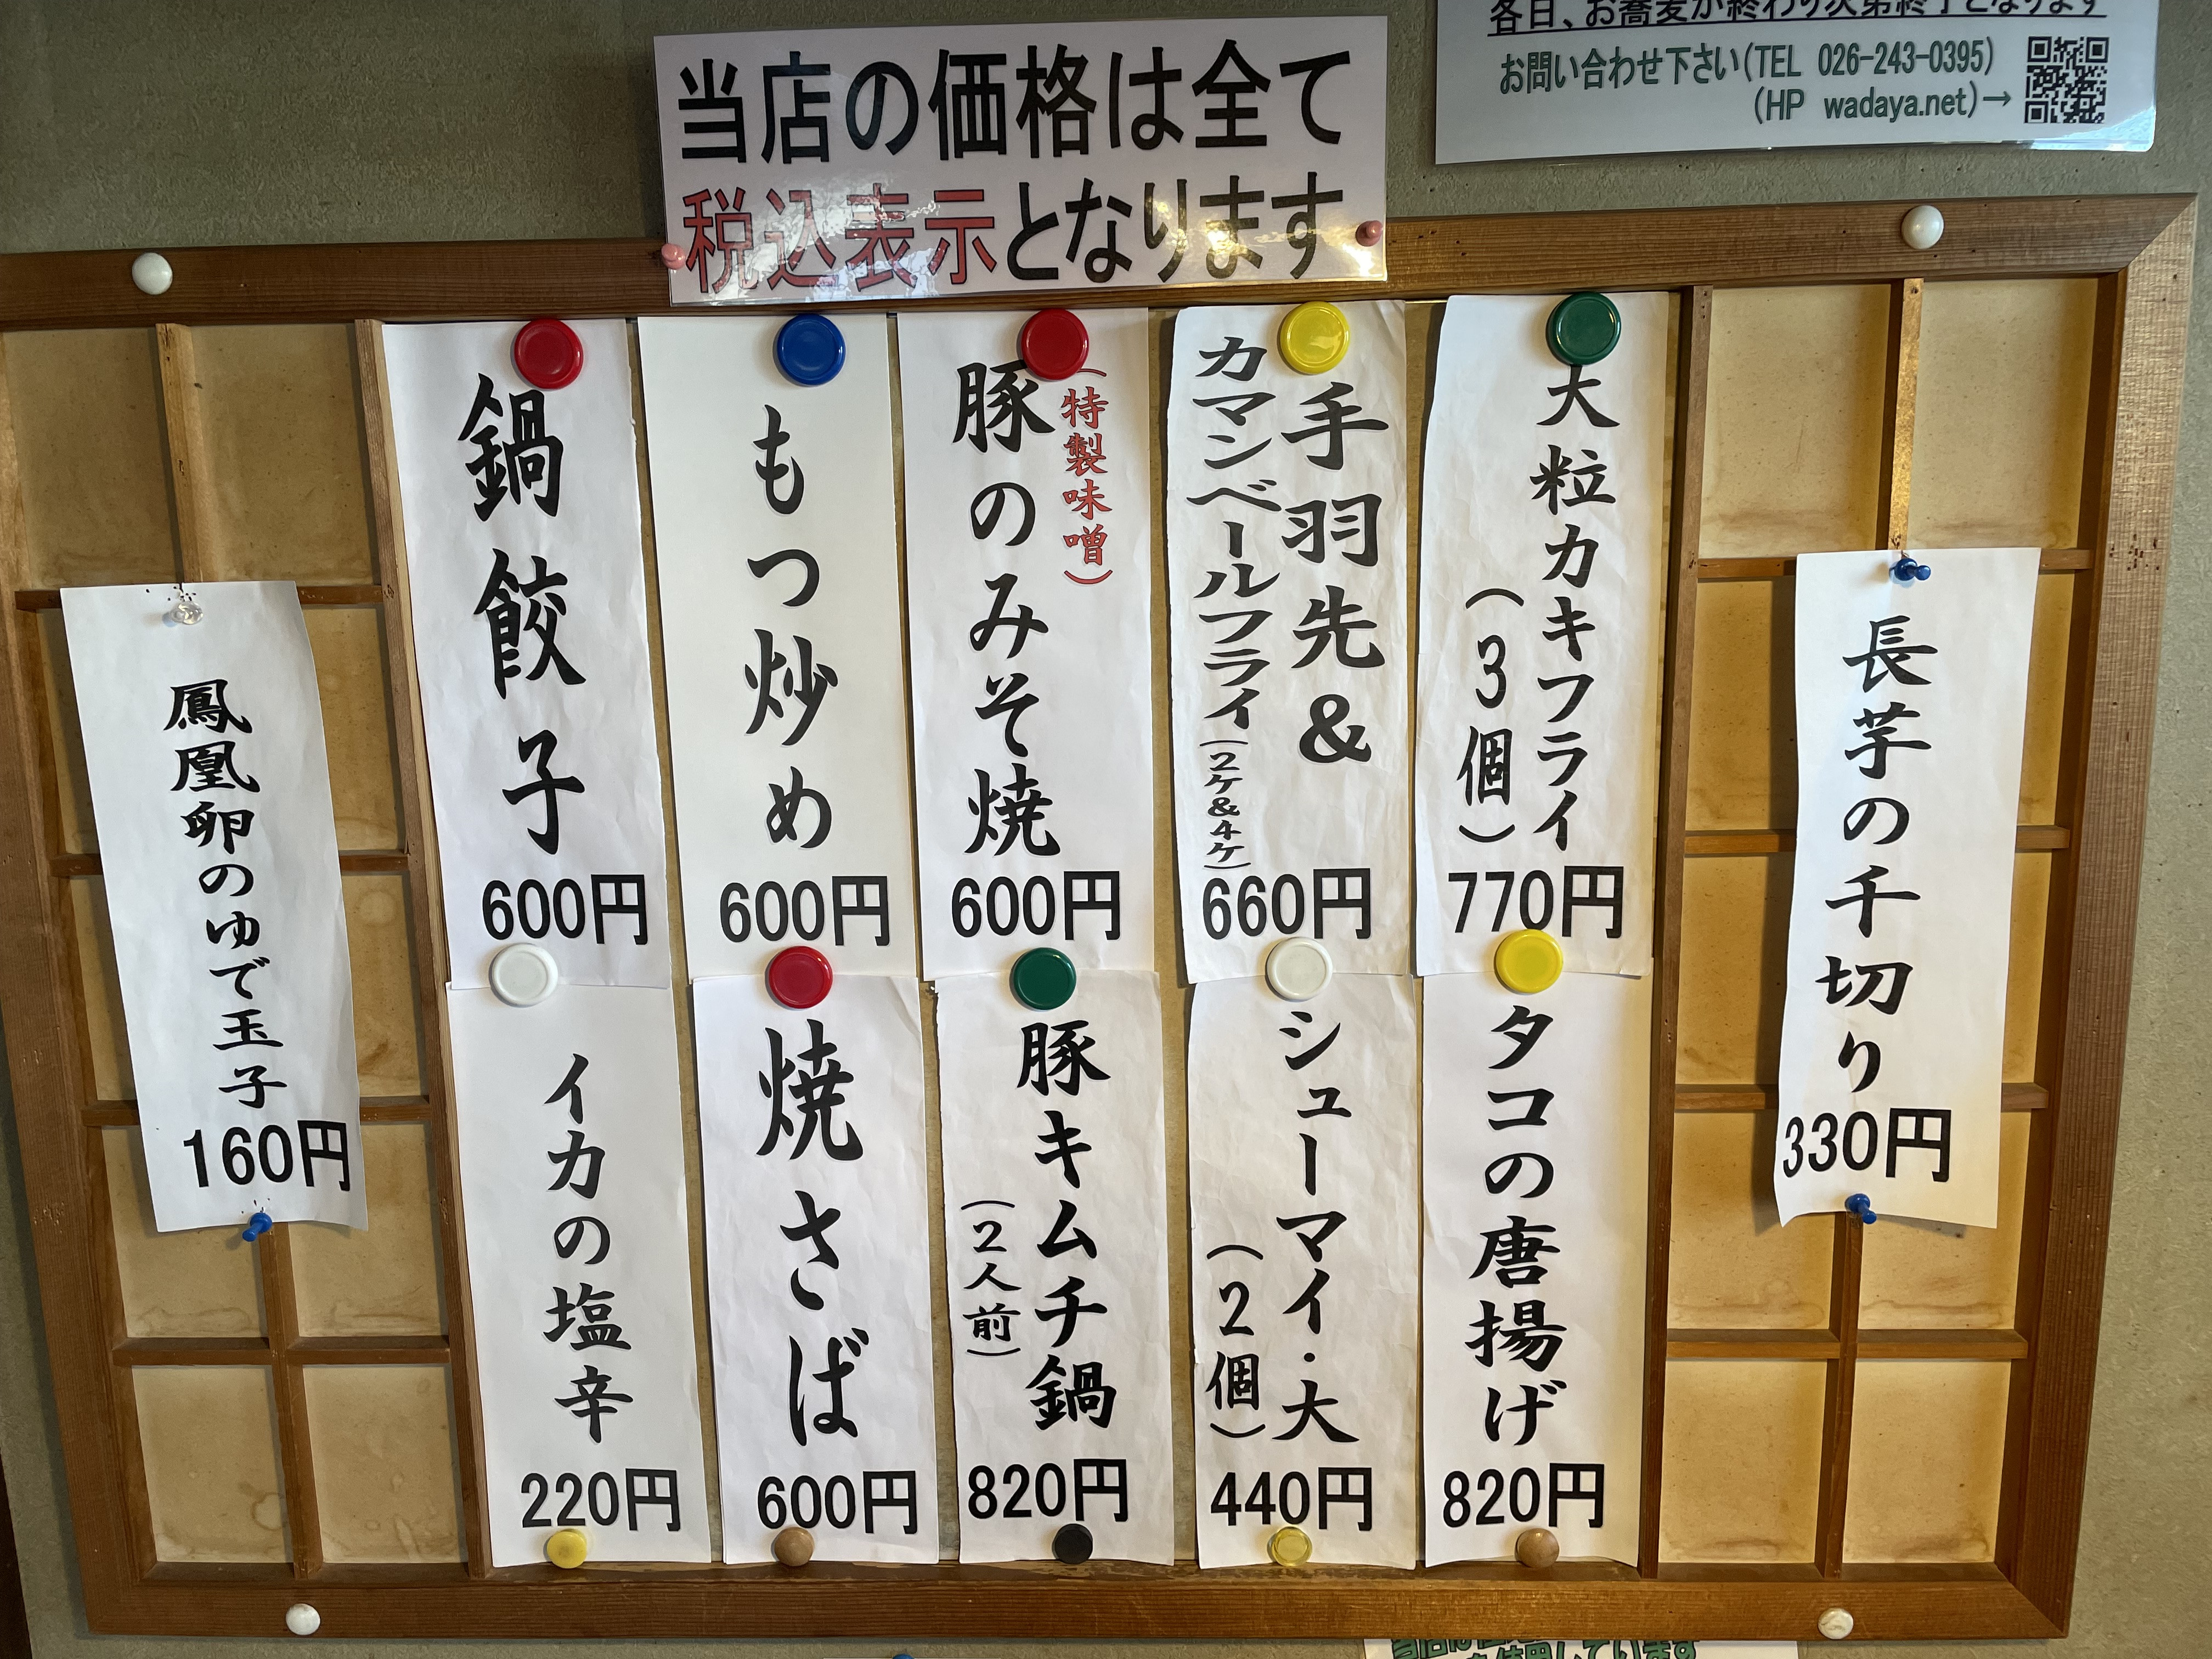 各日、お蕎麦が終わり次第終了となります
お問い合わせ下さい(TEL 026-243-0395)
(HP wadaya.net)→
当店の価格は全て
税込表示となります
長芋の千切り
330円
大粒カキフライ
(3個)
770円
手羽先&
カマンベールフライ(2ヶ&4ヶ)
660円
(特製味噌)
豚のみそ焼
600円
もつ炒め
600円
鍋餃子
600円
タコの唐揚げ
820円
シューマイ・大
(2個)
440円
豚キムチ鍋
(2人前)
820円
焼さば
600円
イカの塩辛
220円
鳳凰卵のゆで玉子
160円